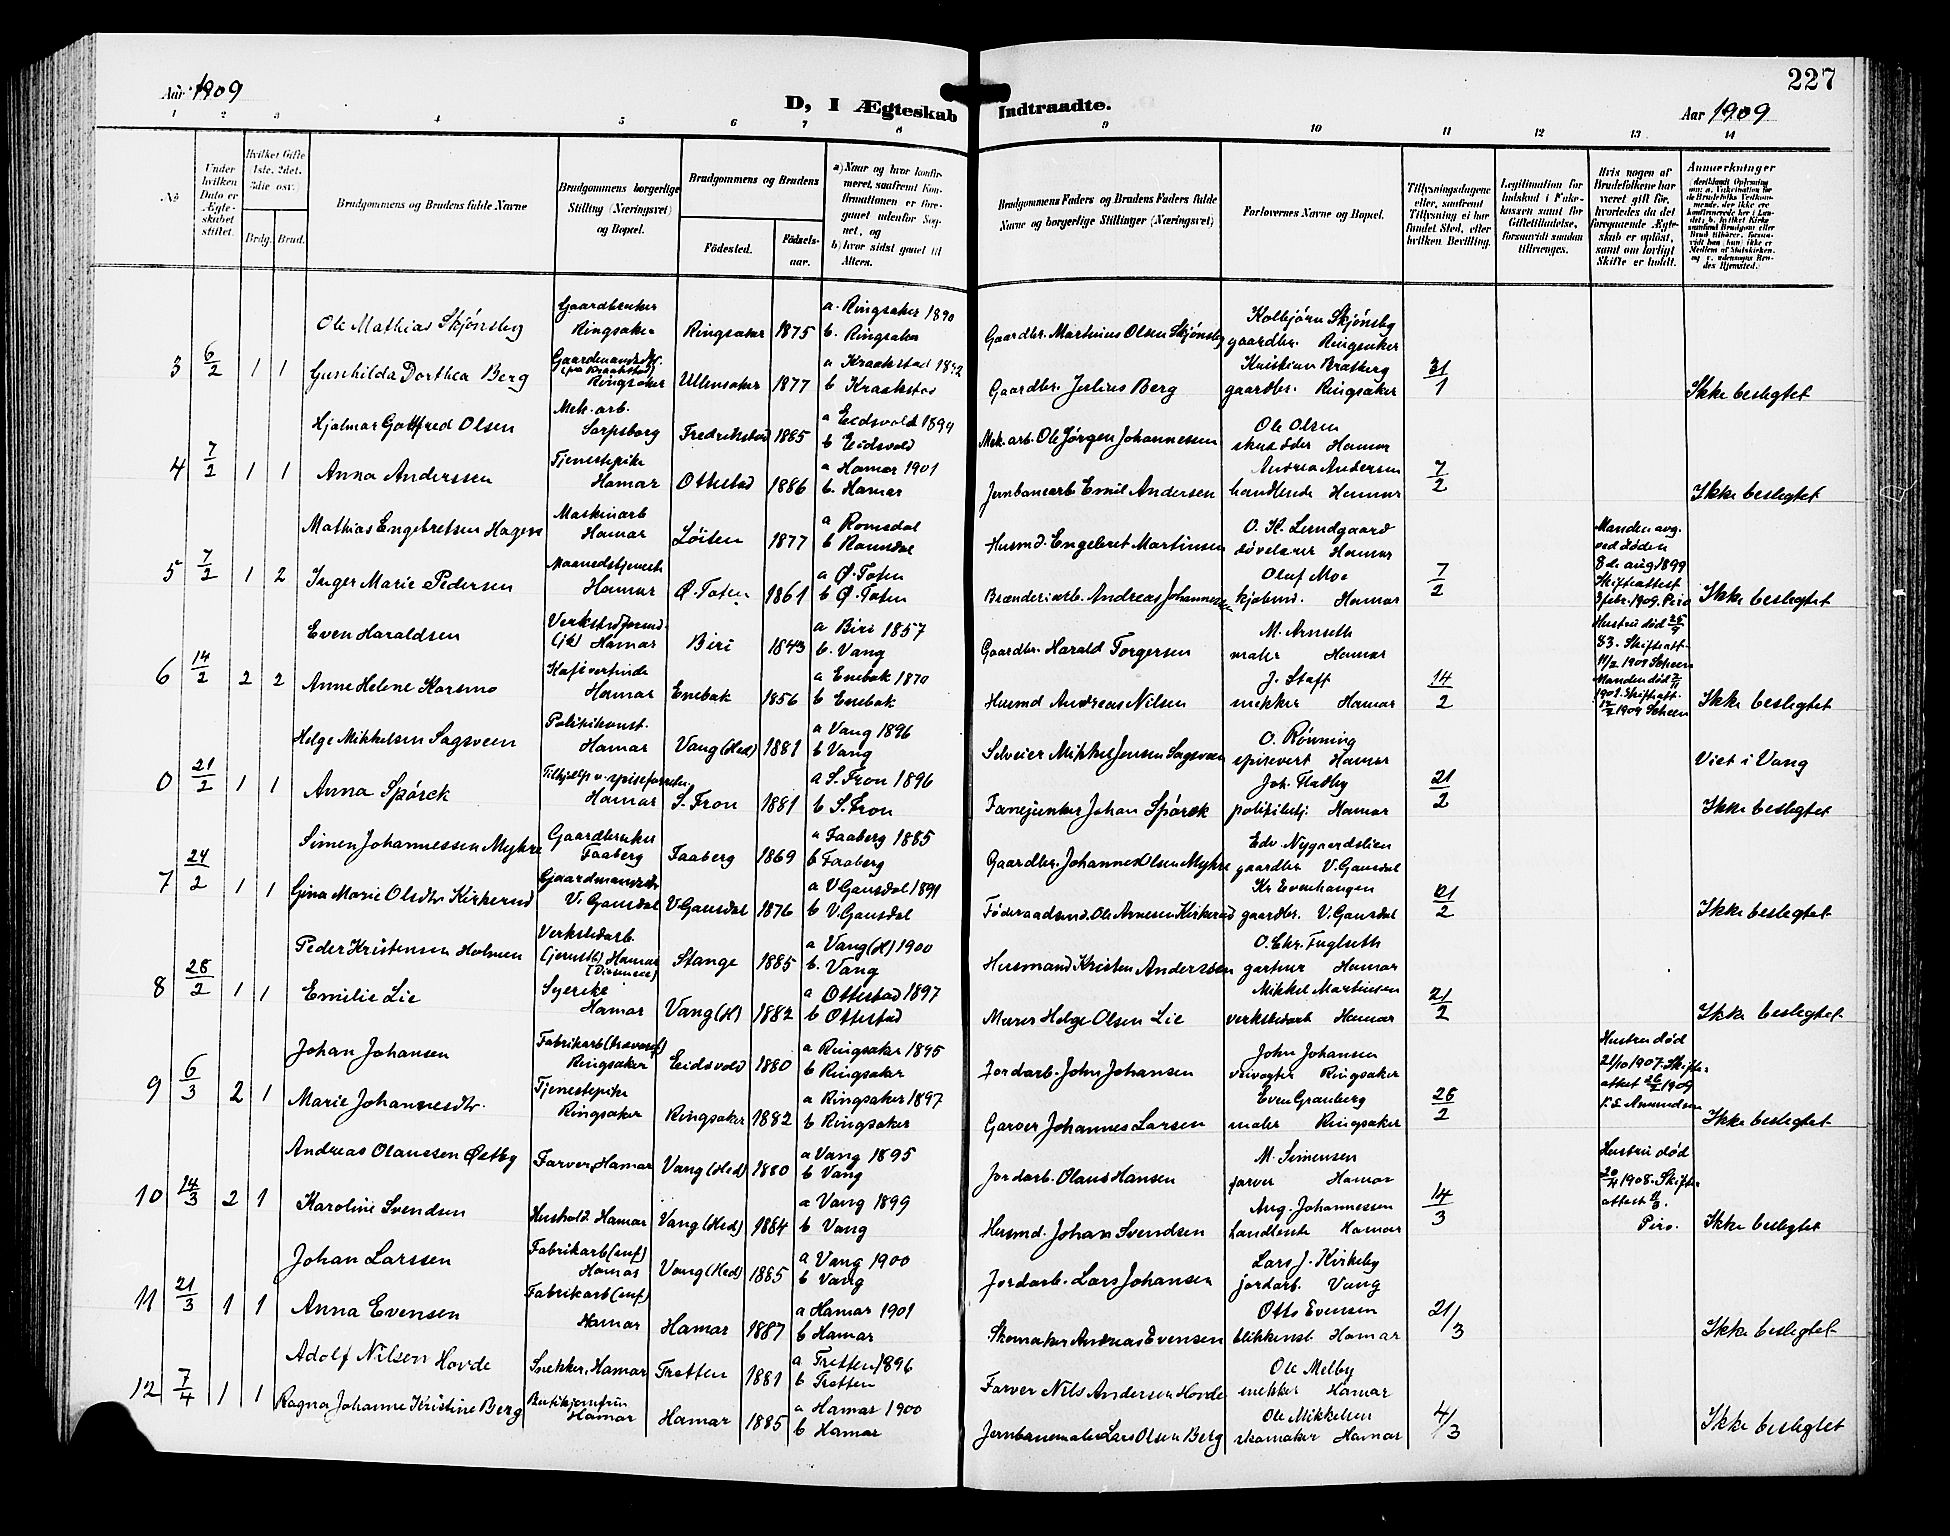 227
Aar 1909
D, I Ægteskab Indtraadte.
Aar 1909
1 2 3 4 5 6 7 8 9 10 11 12 13 14
No
Under hvilken Dato er Ægteskabet stiftet.
Hvilket Gifte 1ste, 2det, 3die osv.)
Brdg. Brud.
Brudgommens og Brudens fulde Navne
Brudgommens borgerlige Stilling (Næringsvei) og Bopæl.
Brudgommens og Brudens
Fødested.
Fødselsaar.
a) Naar og hvor konfirmeret, saafremt Konfirmationen er foregaaet udenfor Sognet, og
b) hvor sidst gaaet til Alters.
Brudgommens Faders og Brudens Faders fulde Navne og borgerlige Stillinger (Næringsvei)
Forlovernes Navne og Bopæl.
Tillysningsdagene eller, saafremt Tillysning ei har fundet Sted, efter hvilken Bevilling.
Legitimation for Indskud i Enkekassen samt for Giftetilladelse, forsaavidt saadan tiltrænges.
Hvis nogen af Brudefolkene har været gift før, hvorledes da det foregaaende Ægteskab er opløst, samt om lovligt Skifte er holdt.
Anmærkninger
Ole Mathias Skjønsby Gaardbruker Ringsaker Ringsaker 1875 a. Ringsaker 1890 b. Ringsaker Gaardbr. Martinius Olsen Skjønsby Kolbjørn Skjønsby gaardbr. Ringsaker
3 6/2 1 1 Gunhilda Dorthea Berg Ringsaker Ullensaker 1877 a Kraakstad b Kraakstad Gaardbr. Julius Berg Kristian Bratberg gaardbr. Ringsaker 31/1 Ikke beslegtet
Hjalmar Gottfred Olsen Mek. arb. Sarpsborg Fredrikstad 1885 a Eidsvold 1899 b Eidsvold Mek. arb. Ole Jørgen Johannesen Ole Olsen Hamar
4 7/2 1 1 Anna Anderssen Tjenestepike Hamar Ottestad 1886 a Hamar 1901 b. Hamar Jernbanearb Emil Andersen Andrea Andersen handlende Hamar 7/2 Ikke beslegtet
Mathias Engebretsen Hagen Maskinarb Hamar Løiten 1877 a Romsdal b Romsdal Husmd. Engebret Martinsen O. K. Lundgaard Hamar
5 7/2 1 2 Inger Marie Pedersen Hamar Ø. Toten 1861 a Ø. Toten b Ø. Toten Brænderiarb. Andreas Johannessen Oluf Moe kjøbmd. Hamar 7/2 Manden avg. ved døden 8de aug 1899 Skifteattest 3 febr. 1909. Piro Ikke beslegtet
Even Haraldsen Hamar Biri 1843 a Biri 1857 b. Vang Gaardbr. Harald Torgersen M. Arnseth maler Hamar Hustru død 83. Skifteatt.
6 14/2 2 2 Anne Helene Karsmo Kafévertinde Hamar Enebak 1856 a Enebak 1870 b Enebak Husmd Andreas Nilsen J. Staff snekker Hamar 14/2 Manden død Ikke beslegtet
Helge Mikkelsen Sagsveen Politikonst. Hamar Vang (Hed) 1881 a Vang 1896 b Vang Selveier Mikkel Jensen Sagsveen O. Rønning spisevert Hamar Viet i Vang
0 21/2 1 1 Anna Spørck Hamar S. Fron 1881 a S. Fron 1896 b S. Fron Fanejunker Johan Spørck Joh. Fladby politibetj. Hamar 21/2 Ikke beslegtet
Simen Johannessen Myhre Gaardbruker Faaberg Faaberg 1869 a Faaberg 1885 b Faaberg Gaardbr. Johannes Olsen Myhre Edv. Nygaardslien gaardbr V. Gausdal
7 24/2 1 1 Gina Marie Olsdtr Kirkerud Gaardmandsdtr V. Gausdal V. Gausdal 1876 a V. Gausdal 1891 b V. Gausdal Føderaadsmd. Ole Arnesen Kirkerud Kr Evenhaugen gaardbr. V. Gausdal 21/2 Ikke beslegtet
Peder Kristensen Holmen Verkstedarb. (jernst.) Hamar Stange 1885 a Vang (H) 1900 b. Vang Husmand Kristen Anderssen O. Chr. Fuglseth gartner Hamar
8 28/2 1 1 Emilie Lie Syerske Hamar Vang (H) 1882 a Ottestad 1897 b Ottestad Murer Helge Olsen Lie Mikkel Martinsen verkstedarb Hamar 21/2 Ikke beslegtet
Johan Johansen Fabrikarb Ringsaker Eidsvold 1880 a Ringsaker 1895 b Ringsaker Jordarb. John Johansen John Johansen veivogter Ringsaker Hustru død 21/10 1907. Skifteattest
9 6/3 2 1 Marie Johannesdtr. Tjenestepike Ringsaker Ringsaker 1882 a Ringsaker 1897 b Ringsaker Garver Johannes Larsen Even Granberg maler Ringsaker 28/2 Ikke beslegtet
Andreas Olaussen Østby Farver, Hamar Vang (Hed) 1880 a Vang 1895 b Vang Jordarb. Olaus Hansen M. Simensen farver Hamar Hustru død 1908. Skifteattest
10 14/3 2 1 Karoline Svendsen Hushold. Hamar Vang (Hed) 1884 a Vang 1899 b Vang Husmd. Johan Svendsen Aug. Johannessen handlende Hamar 14/3 Piro. Ikke beslegtet
Johan Larssen Fabrikarb Hamar Vang (Hed) 1885 a Vang 1900 b Vang Jordarb. Lars Johansen Lars J. Kirkeby jordarb. Vang
11 21/3 1 1 Anna Evensen Fabrikarb Hamar Hamar 1887 a Hamar 1901 b Hamar Skomaker Andreas Evensen Otto Evensen blikkensl. Hamar 21/3 Ikke beslegtet
Adolf Nilsen Hovde Snekker, Hamar Tretten 1881 a Tretten 1896 b Tretten Farver Nils Andersen Hovde Ole Melby snekker Hamar
12 7/4 1 1 Ragna Johanne Kristine Berg Butikjomfru Hamar Hamar 1885 a Hamar 1900 b Hamar Jernbanemaler Lars Olsen Berg Ole Mikkelsen skomaker Hamar 4/3 Ikke beslegtet